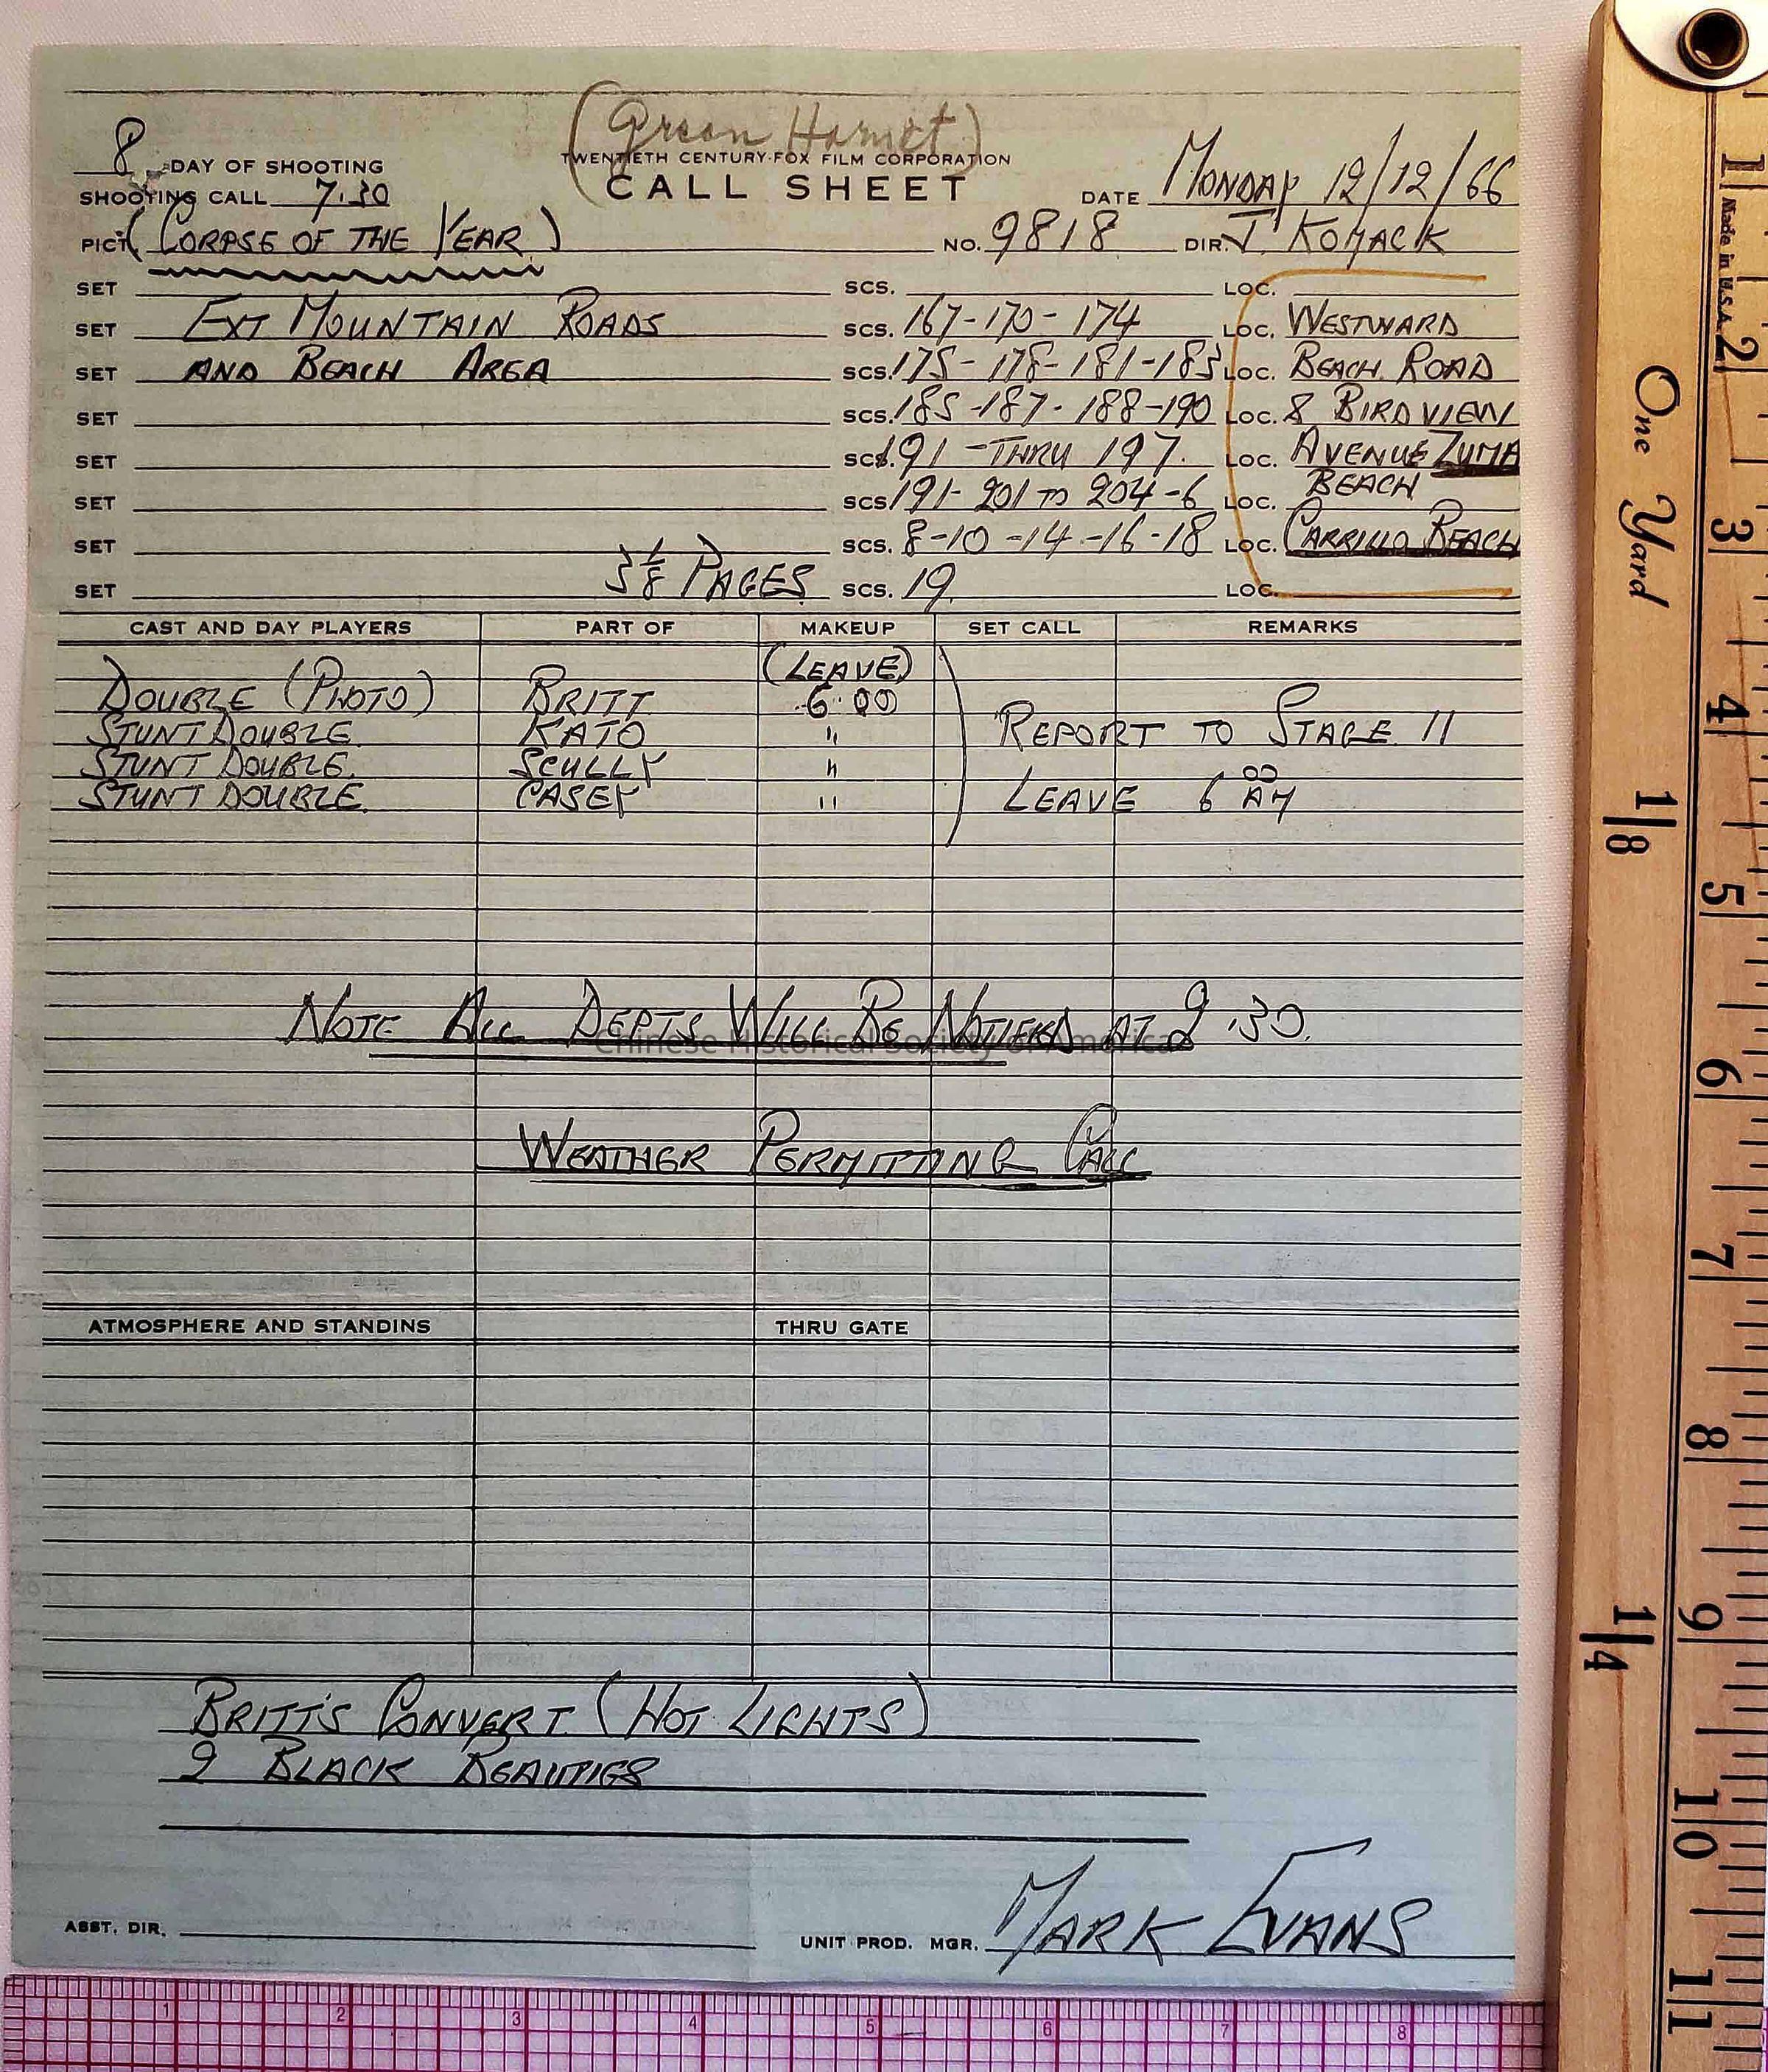 (Green Hornet)
8 DAY OF SHOOTING
TWENTIETH CENTURY-FOX FILM CORPORATION
SHOOTING CALL 7.30
CALL SHEET
DATE MONDAY 12/12/66
PICT (CORPSE OF THE YEAR)
NO. 9818 DIR. J KOMACK
SET SCS. LOC.
SET EXT MOUNTAIN ROADS SCS. 167-170-174 LOC. WESTWARD
SET AND BEACH AREA SCS. 175-178-181-183 LOC. BEACH ROAD
SET SCS. 185-187-188-190 LOC. & BIRDVIEW
SET SCS. 191-THRU 197. LOC. AVENUE ZUMA
SET SCS. 191-201 TO 204-6 LOC. BEACH
SET SCS. 8-10-14-16-18 LOC. CARRILLO BEACH
SET 3 1/8 PAGES SCS. 19. LOC.
CAST AND DAY PLAYERS PART OF MAKEUP SET CALL REMARKS
(LEAVE)
DOUBLE (PHOTO) BRITT 6:00
STUNT DOUBLE KATO " REPORT TO STAGE 11
STUNT DOUBLE. SCULLY "
STUNT DOUBLE CASEY " LEAVE 6 00 AM
NOTE ALL DEPTS WILL BE NOTIFIED AT 2:30.
Chinese Historical Society of America
WEATHER PERMITTING CALL
ATMOSPHERE AND STANDINS THRU GATE
BRITT'S CONVERT. (HOT LIGHTS)
2 BLACK BEAUTIES
ASST. DIR. UNIT PROD. MGR. MARK EVANS
Made in U.S.A.
One Yard
1/8
1/4
1 2 3 4 5 6 7 8 9 10 11
1 2 3 4 5 6 7 8